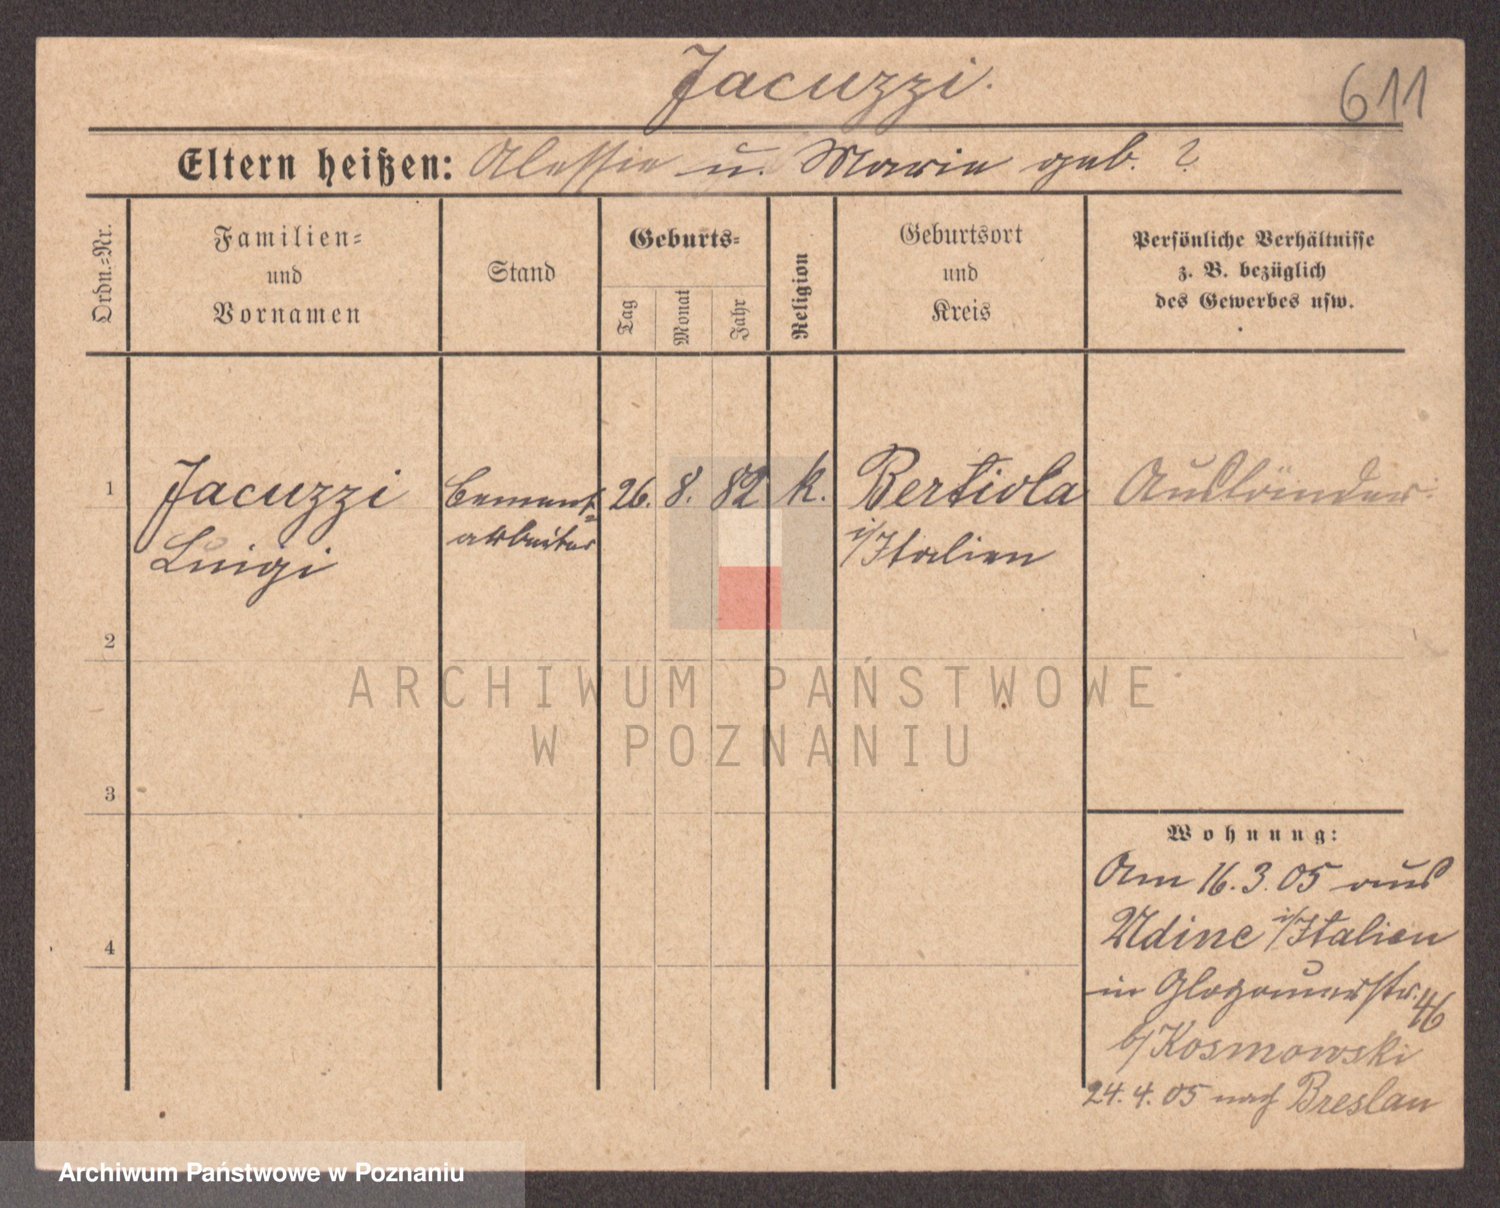 Jacuzzi.
611
Eltern heißen: Alessio u. Marie geb. ?
Ordn.-Nr.
Familien-
und
Vornamen
Stand
Geburts-
Tag
Monat
Jahr
Religion
Geburtsort
und
Kreis
Persönliche Verhältnisse
z. B. bezüglich
des Gewerbes usw.
1
Jacuzzi
Luigi
Cement-
arbeiter
26. 8. 82
k.
Bertiola
i/Italien
Ausländer.
2
3
4
Wohnung:
Am 16.3.05 aus
Udine i/Italien
in Glogauerstr. 46
b/Kosmowski
24.4.05 nach Breslau
ARCHIWUM PAŃSTWOWE
W POZNANIU
Archiwum Państwowe w Poznaniu